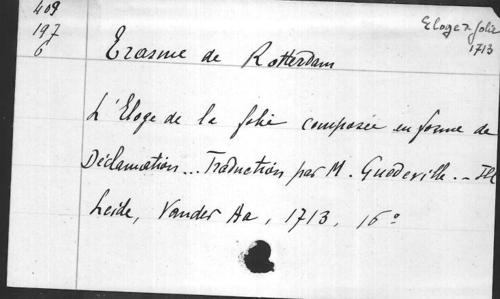 409
197
6
Eloge de folie
1713
Erasme de Rotterdam
L'Eloge de la folie composée en forme de
Déclamation... Traduction par M. Guedeville. - Ill
Leide, Vander Aa, 1713, 16°